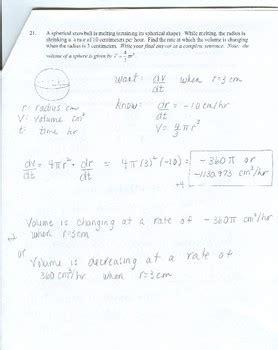 21. A spherical snowball is melting (retaining its spherical shape). While melting, the radius is
shrinking at a rate of 10 centimeters per hour. Find the rate at which the volume is changing
when the radius is 3 centimeters. Write your final answer as a complete sentence. Note: the
volume of a sphere is given by V = 4/3 πr³.
want: dv/dt when r=3 cm
r: radius cm
V: volume cm³
t: time hr
know: dr/dt = -10 cm/hr
V = 4/3 π r³
dv/dt = 4πr² · dr/dt = 4π(3)²(-10) = -360π or
-1130.973 cm³/hr
+4
Volume is changing at a rate of -360π cm³/hr
when r=3cm
or
Volume is decreasing at a rate of
360 cm³/hr when r=3cm